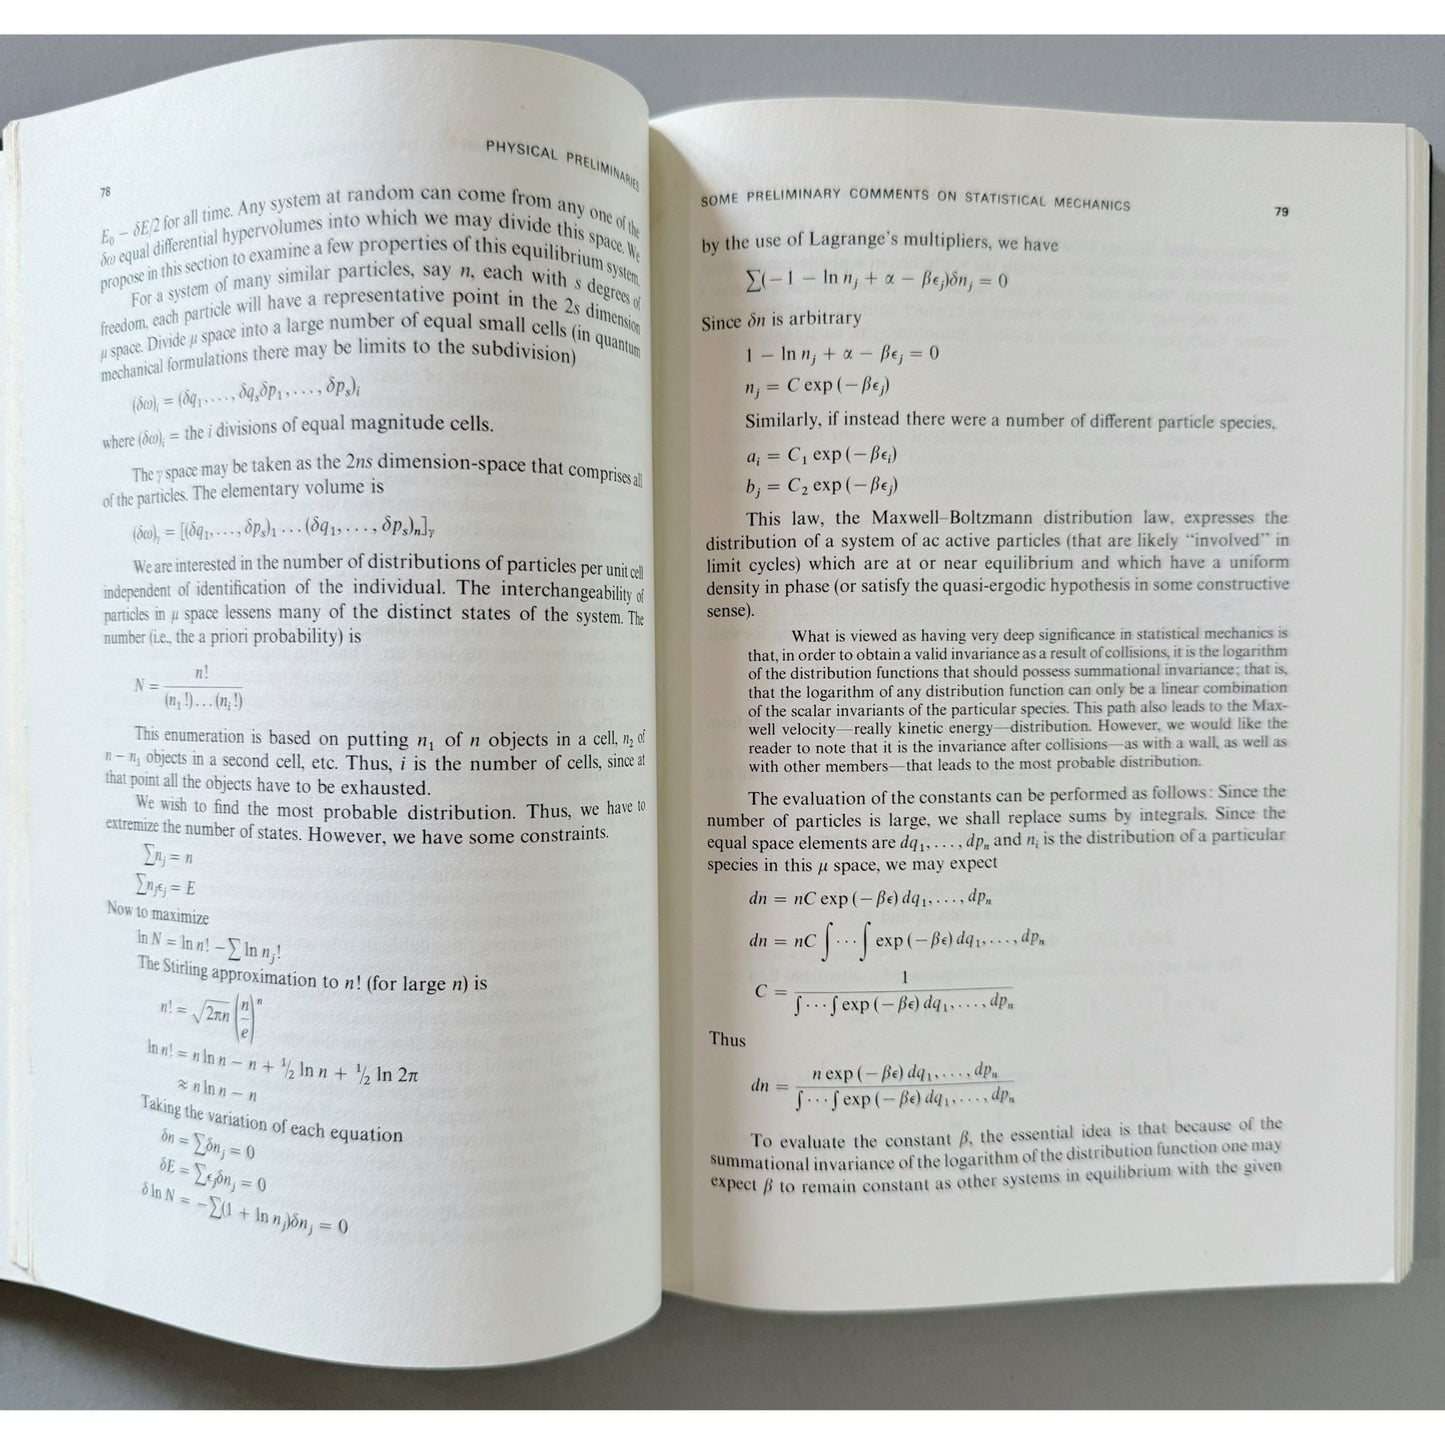 78
PHYSICAL PRELIMINARIES
E₀ − δE/2 for all time. Any system at random can come from any one of the
δω equal differential hypervolumes into which we may divide this space. We
propose in this section to examine a few properties of this equilibrium system.
For a system of many similar particles, say n, each with s degrees of
freedom, each particle will have a representative point in the 2s dimension
μ space. Divide μ space into a large number of equal small cells (in quantum
mechanical formulations there may be limits to the subdivision)
(δω)ᵢ = (δq₁, . . . , δqₛδp₁, . . . , δpₛ)ᵢ
where (δω)ᵢ = the i divisions of equal magnitude cells.
The γ space may be taken as the 2ns dimension-space that comprises all
of the particles. The elementary volume is
(δω)ᵧ = [(δq₁, . . . , δpₛ)₁ . . . (δq₁, . . . , δpₛ)ₙ]ᵧ
We are interested in the number of distributions of particles per unit cell
independent of identification of the individual. The interchangeability of
particles in μ space lessens many of the distinct states of the system. The
number (i.e., the a priori probability) is
N = n! / (n₁!) . . . (nᵢ!)
This enumeration is based on putting n₁ of n objects in a cell, n₂ of
n − n₁ objects in a second cell, etc. Thus, i is the number of cells, since at
that point all the objects have to be exhausted.
We wish to find the most probable distribution. Thus, we have to
extremize the number of states. However, we have some constraints.
∑nⱼ = n
∑nⱼϵⱼ = E
Now to maximize
ln N = ln n! − ∑ ln nⱼ!
The Stirling approximation to n! (for large n) is
n! = √2πn (n/e)ⁿ
ln n! = n ln n − n + ½ ln n + ½ ln 2π
≈ n ln n − n
Taking the variation of each equation
δn = ∑δnⱼ = 0
δE = ∑ϵⱼδnⱼ = 0
δ ln N = −∑(1 + ln nⱼ)δnⱼ = 0
SOME PRELIMINARY COMMENTS ON STATISTICAL MECHANICS
79
by the use of Lagrange's multipliers, we have
∑(−1 − ln nⱼ + α − βϵⱼ)δnⱼ = 0
Since δn is arbitrary
1 − ln nⱼ + α − βϵⱼ = 0
nⱼ = C exp (−βϵⱼ)
Similarly, if instead there were a number of different particle species,
aᵢ = C₁ exp (−βϵᵢ)
bⱼ = C₂ exp (−βϵⱼ)
This law, the Maxwell–Boltzmann distribution law, expresses the
distribution of a system of ac active particles (that are likely “involved” in
limit cycles) which are at or near equilibrium and which have a uniform
density in phase (or satisfy the quasi-ergodic hypothesis in some constructive
sense).
What is viewed as having very deep significance in statistical mechanics is
that, in order to obtain a valid invariance as a result of collisions, it is the logarithm
of the distribution functions that should possess summational invariance; that is,
that the logarithm of any distribution function can only be a linear combination
of the scalar invariants of the particular species. This path also leads to the Max-
well velocity—really kinetic energy—distribution. However, we would like the
reader to note that it is the invariance after collisions—as with a wall, as well as
with other members—that leads to the most probable distribution.
The evaluation of the constants can be performed as follows: Since the
number of particles is large, we shall replace sums by integrals. Since the
equal space elements are dq₁, . . . , dpₙ and nᵢ is the distribution of a particular
species in this μ space, we may expect
dn = nC exp (−βϵ) dq₁, . . . , dpₙ
dn = nC ∫ · · · ∫ exp (−βϵ) dq₁, . . . , dpₙ
C = 1 / ∫ · · · ∫ exp (−βϵ) dq₁, . . . , dpₙ
Thus
dn = n exp (−βϵ) dq₁, . . . , dpₙ / ∫ · · · ∫ exp (−βϵ) dq₁, . . . , dpₙ
To evaluate the constant β, the essential idea is that because of the
summational invariance of the logarithm of the distribution function one may
expect β to remain constant as other systems in equilibrium with the given